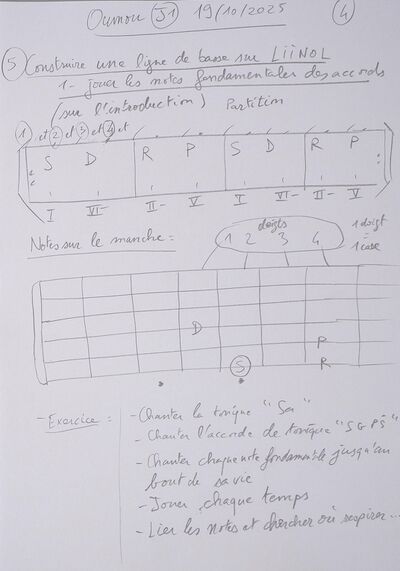 Oumou J1 19/10/2025 4
5 Construire une ligne de basse sur LiiNOL
1- jouer les notes fondamentales des accords
(sur l'introduction) Partition
1 et 2 et 3 et 4 et
S D R P S D R P
I VI- II- V I VI- II- V
Notes sur le manche :
doigts
1 2 3 4
1 doigt
=
1 case
D
P
S R
- Exercice :
- Chanter la tonique "Sa"
- Chanter l'accord de tonique "S G P Ṡ"
- Chanter chaque note fondamentale jusqu'au
bout de sa vie
- Jouer chaque temps
- Lier les notes et chercher où respirer...